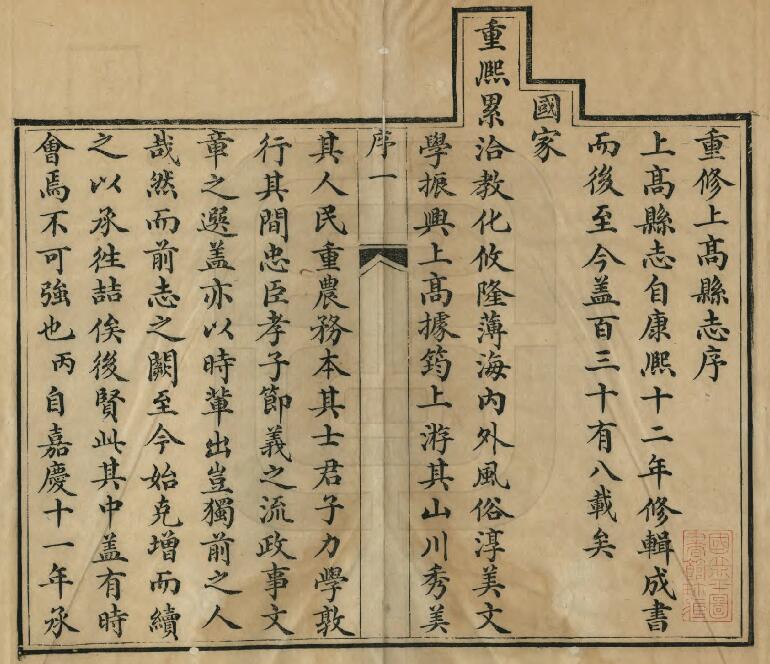 重修上髙縣志序
上髙縣志自康熈十二年修輯成書
而後至今盖百三十有八載矣
國家
重熈累洽教化攸隆薄海内外風俗淳美文
學振興上髙據筠上游其山川秀美
序一
其人民重農務本其士君子力學敦
行其間忠臣孝子節義之流政事文
章之選盖亦以時輩出豈獨前之人
哉然而前志之闕至今始克增而續
之以承徃詰俟後賢此其中盖有時
會焉不可強也丙自嘉慶十一年承